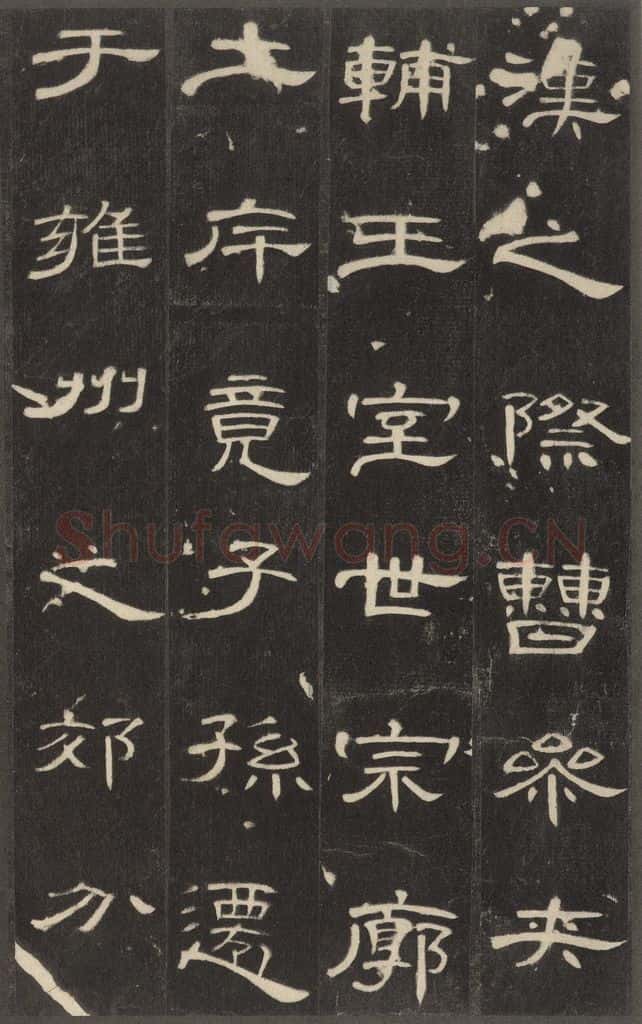 漢之際曹參夾
輔王室世宗廓
土斥竟子孫遷
于雍州之郊分
Shufawang.CN